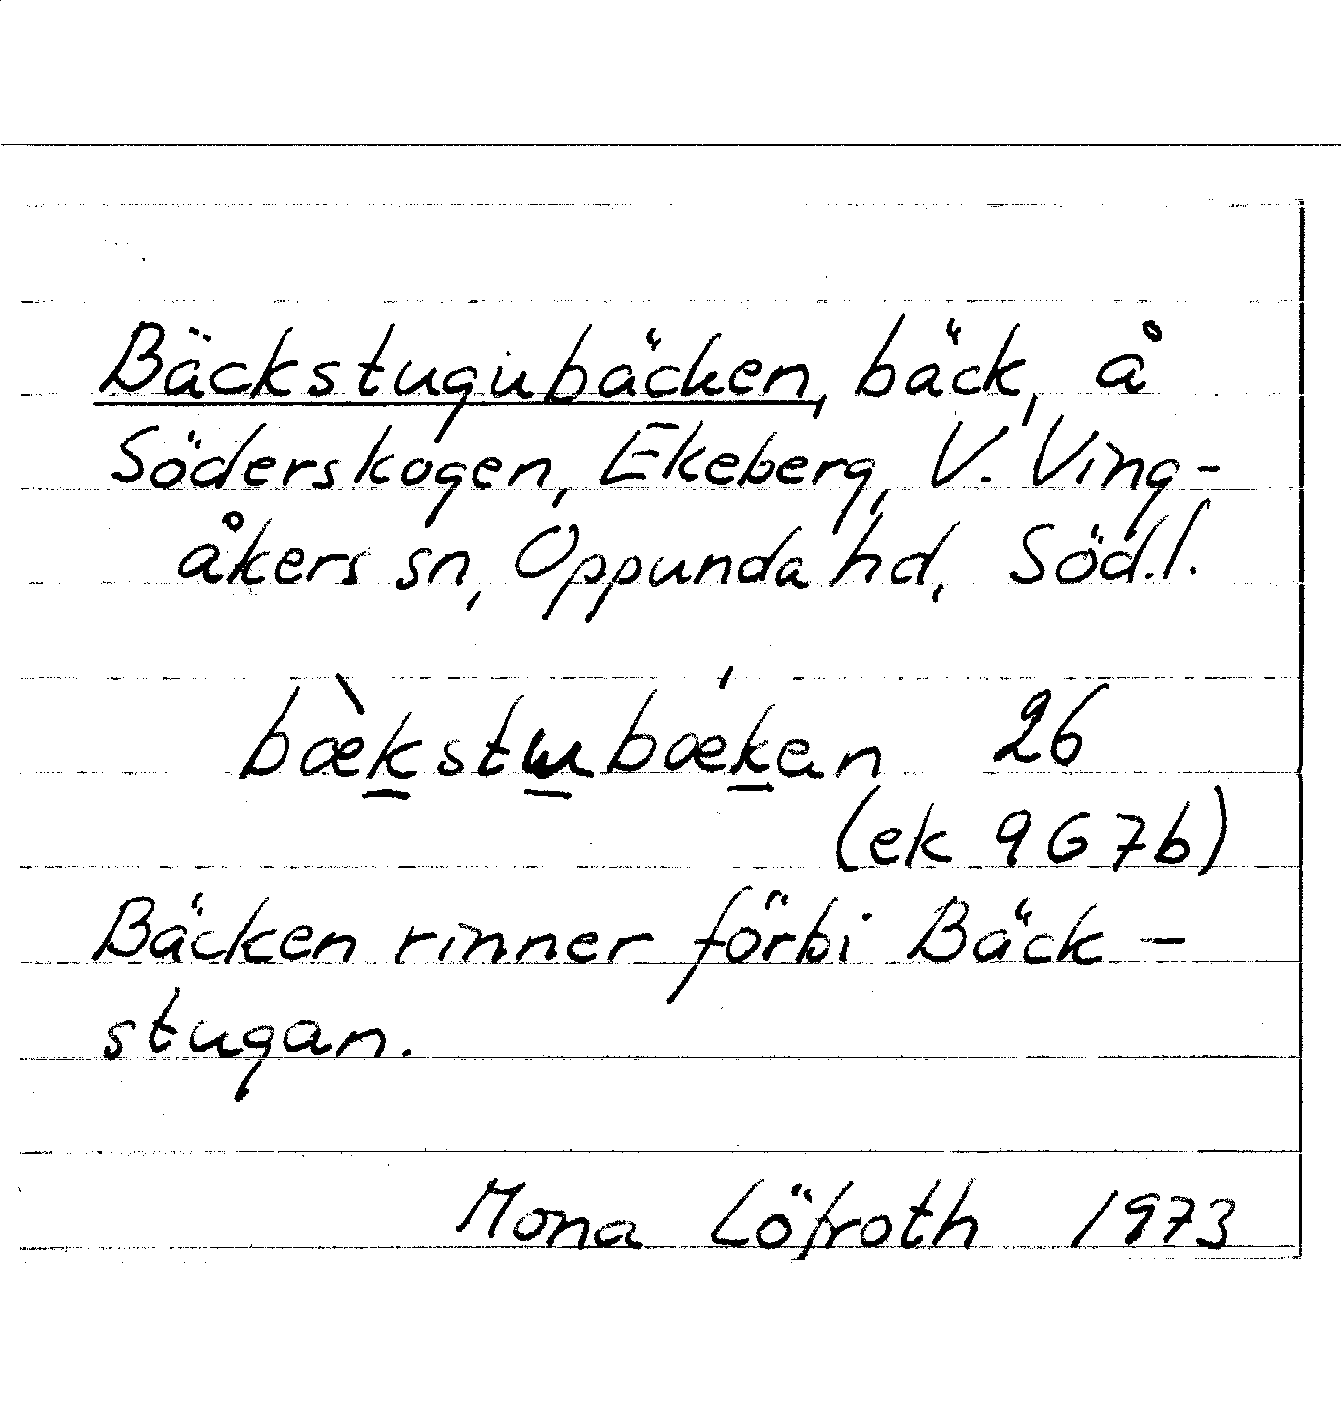 Bäckstugubäcken, bäck, å
Söderskogen, Ekeberg, V. Ving-
åkers sn, Oppunda hd, Söd.l.
bæ̀kstɯbǽkan 26
(ek 9G 7b)
Bäcken rinner förbi Bäck-
stugan.
Mona Löfroth 1973